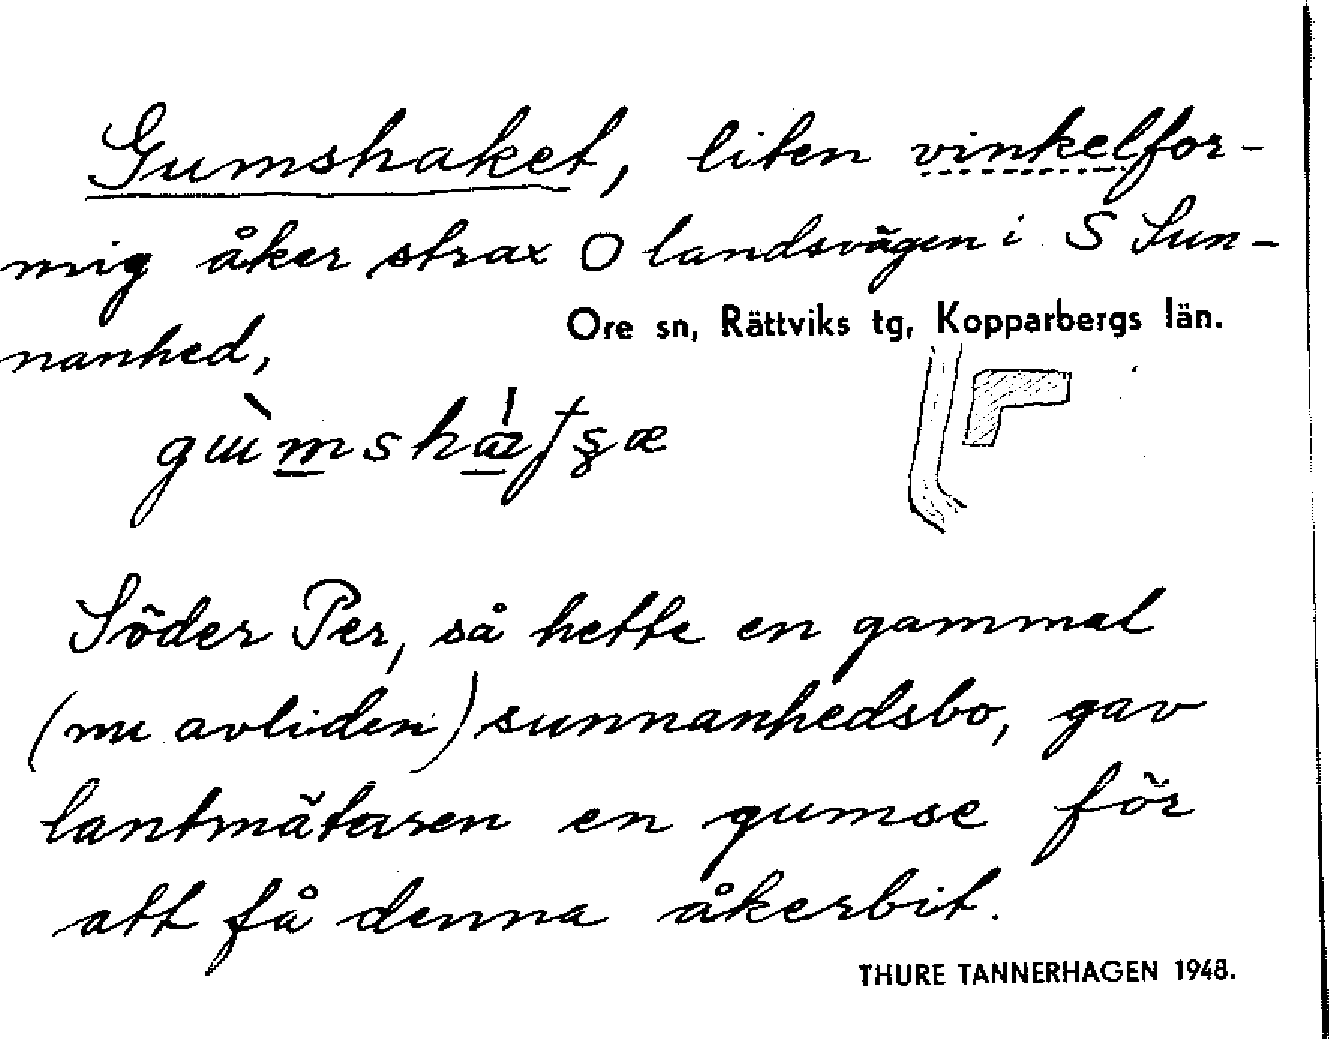 Gumshaket, liten vinkelfor-
mig åker strax O landsvägen i S Sun-
nanhed,
Ore sn, Rättviks tg, Kopparbergs län.
Söder Per, så hette en gammal
(nu avliden) sunnanhedsbo, gav
lantmätaren en gumse för
att få denna åkerbit.
THURE TANNERHAGEN 1948.